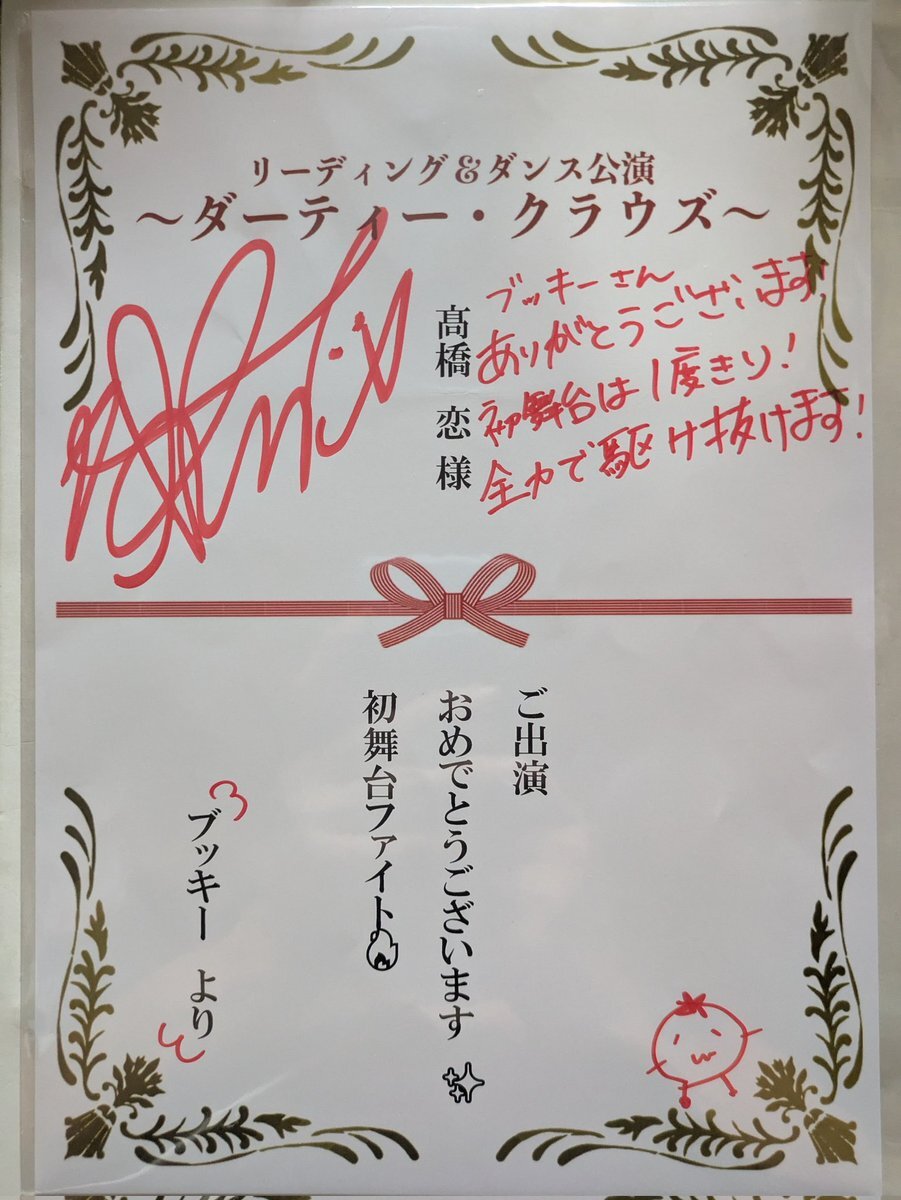 リーディング＆ダンス公演
～ダーティー・クラウズ～
髙橋 恋 様
ブッキーさん
ありがとうございます
初舞台は1度きり!
全力で駆け抜けます!
ご出演
おめでとうございます
初舞台ファイト
ブッキー より